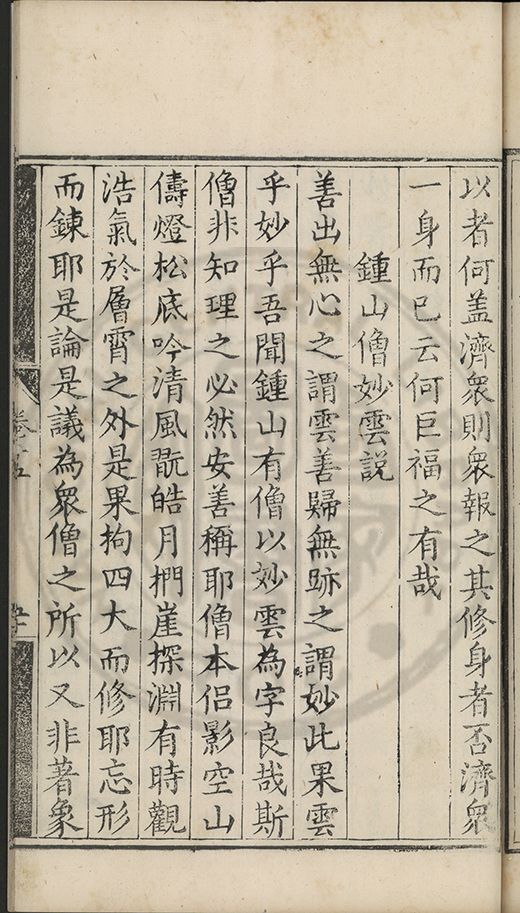 以者何盖濟衆則衆報之其修身者否濟衆
一身而已云何巨福之有哉
鍾山僧妙雲説
善出無心之謂雲善歸無跡之謂妙此果雲
乎妙乎吾聞鍾山有僧以妙雲為字良哉斯
僧非知理之必然安善稱耶僧本侣影空山
儔燈松底吟清風翫皓月捫崖探淵有時觀
浩氣於層霄之外是果拘四大而修耶忘形
而鍊耶是論是議為衆僧之所以又非著象